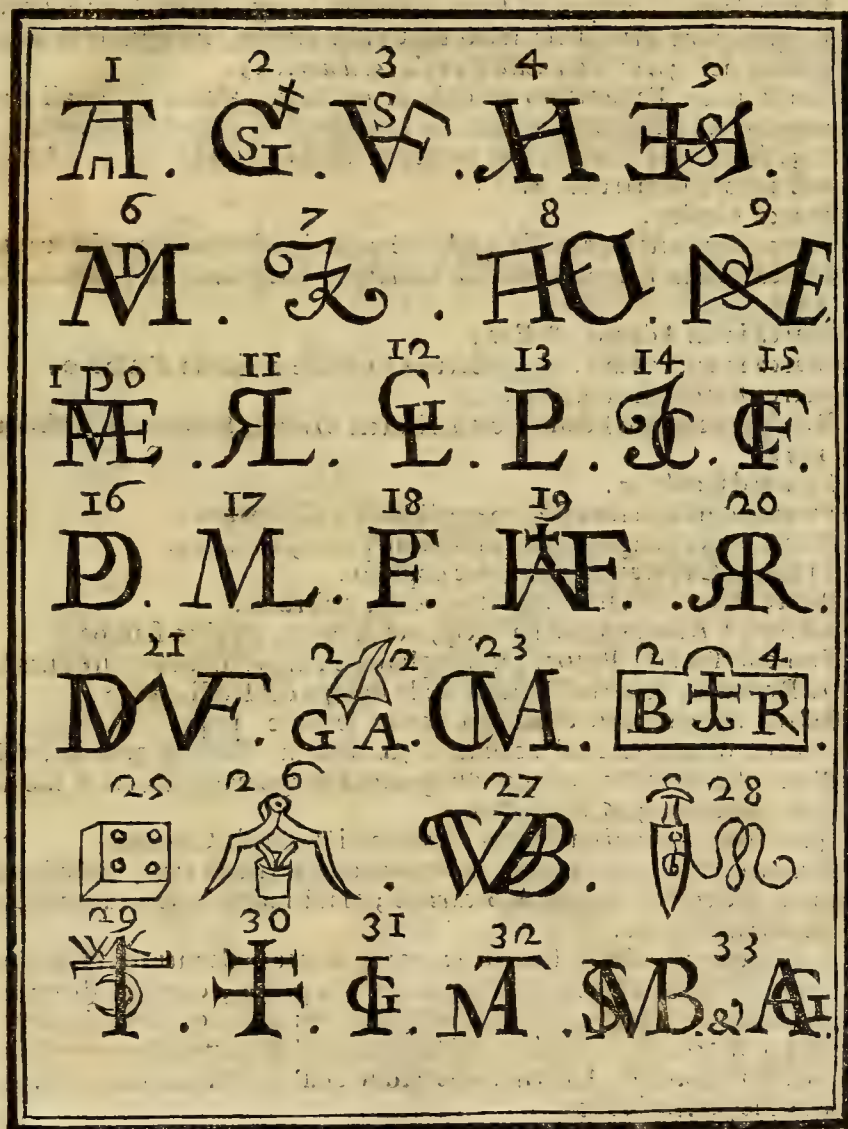 1 2 3 4 5
AT. GSI. VSF. H. ESH.
6 7 8 9
ADM. AO. NSE
10 11 12 13 14 15
D
ME. RL. GL. PL. JC. CF.
16 17 18 19 20
PD. ML. PF. HAF. RR.
21 22 23 24
DMF. G A. CMA. B R.
25 26 27 28
WB.
29 30 31 32 33
IG. MAT. SMB. & AG.